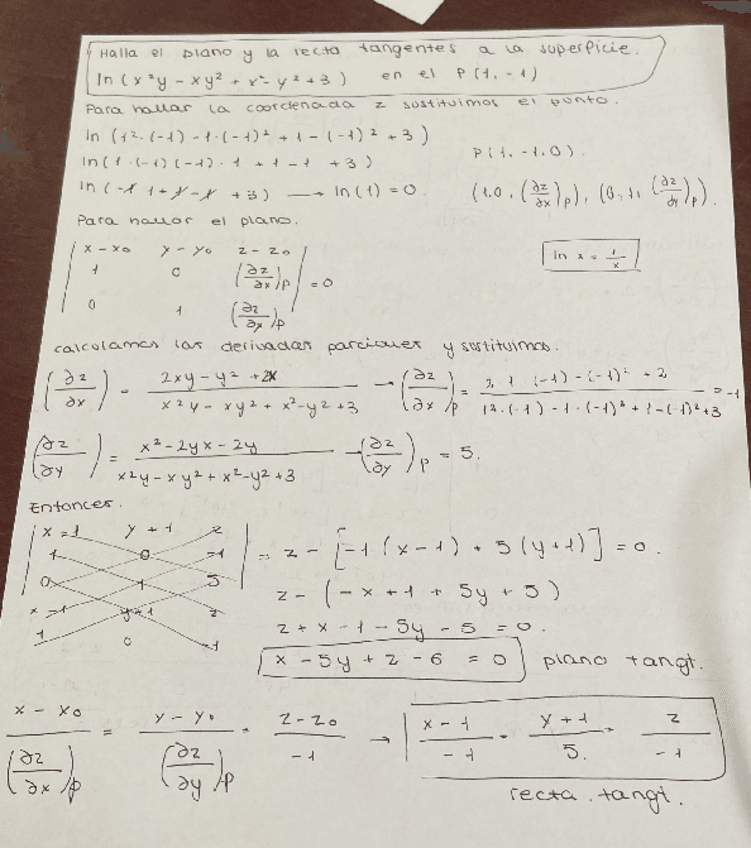 Halla el plano y la recta tangentes a la superficie.
ln(x²y - xy² + x² - y² + 3) en el P(1, -1)
Para hallar la coordenada z sustituimos el punto.
ln(1²·(-1) - 1·(-1)² + 1 - (-1)² + 3)
ln(1·(-1)(-1)·1 + 1 - 1 + 3)
P(1, -1, 0).
ln(-1 1 + 1 - 1 + 3) → ln(1) = 0.
(1, 0, (∂z/∂x)p), (0, 1, (∂z/∂y)p).
Para hallar el plano.
| x - x₀ y - y₀ z - z₀ |
| 1 0 (∂z/∂x)p | = 0
| 0 1 (∂z/∂x)p |
ln x = 1/x
calculamos las derivadas parciales y sustituimos.
(∂z/∂x) = (2xy - y² + 2x)/(x²y - xy² + x² - y² + 3) → (∂z/∂x)p = (2 1 (-1) - (-1)² + 2)/(1²·(-1) - 1·(-1)² + 1 - (-1)² + 3) = -1
(∂z/∂y) = (x² - 2yx - 2y)/(x²y - xy² + x² - y² + 3) → (∂z/∂y)p = 5.
Entonces.
| x - 1 y + 1 z |
| 1 0 -1 | = z - [-1(x - 1) + 5(y + 1)] = 0.
| 0 1 5 |
x - 1 y + 1 z
1 0 -1
z - (-x + 1 + 5y + 5)
z + x - 1 - 5y - 5 = 0.
x - 5y + z - 6 = 0 plano tangt.
(x - x₀)/(∂z/∂x)p = (y - y₀)/(∂z/∂y)p = (z - z₀)/-1 → (x - 1)/-1 = (y + 1)/5. = z/-1
recta. tangt.